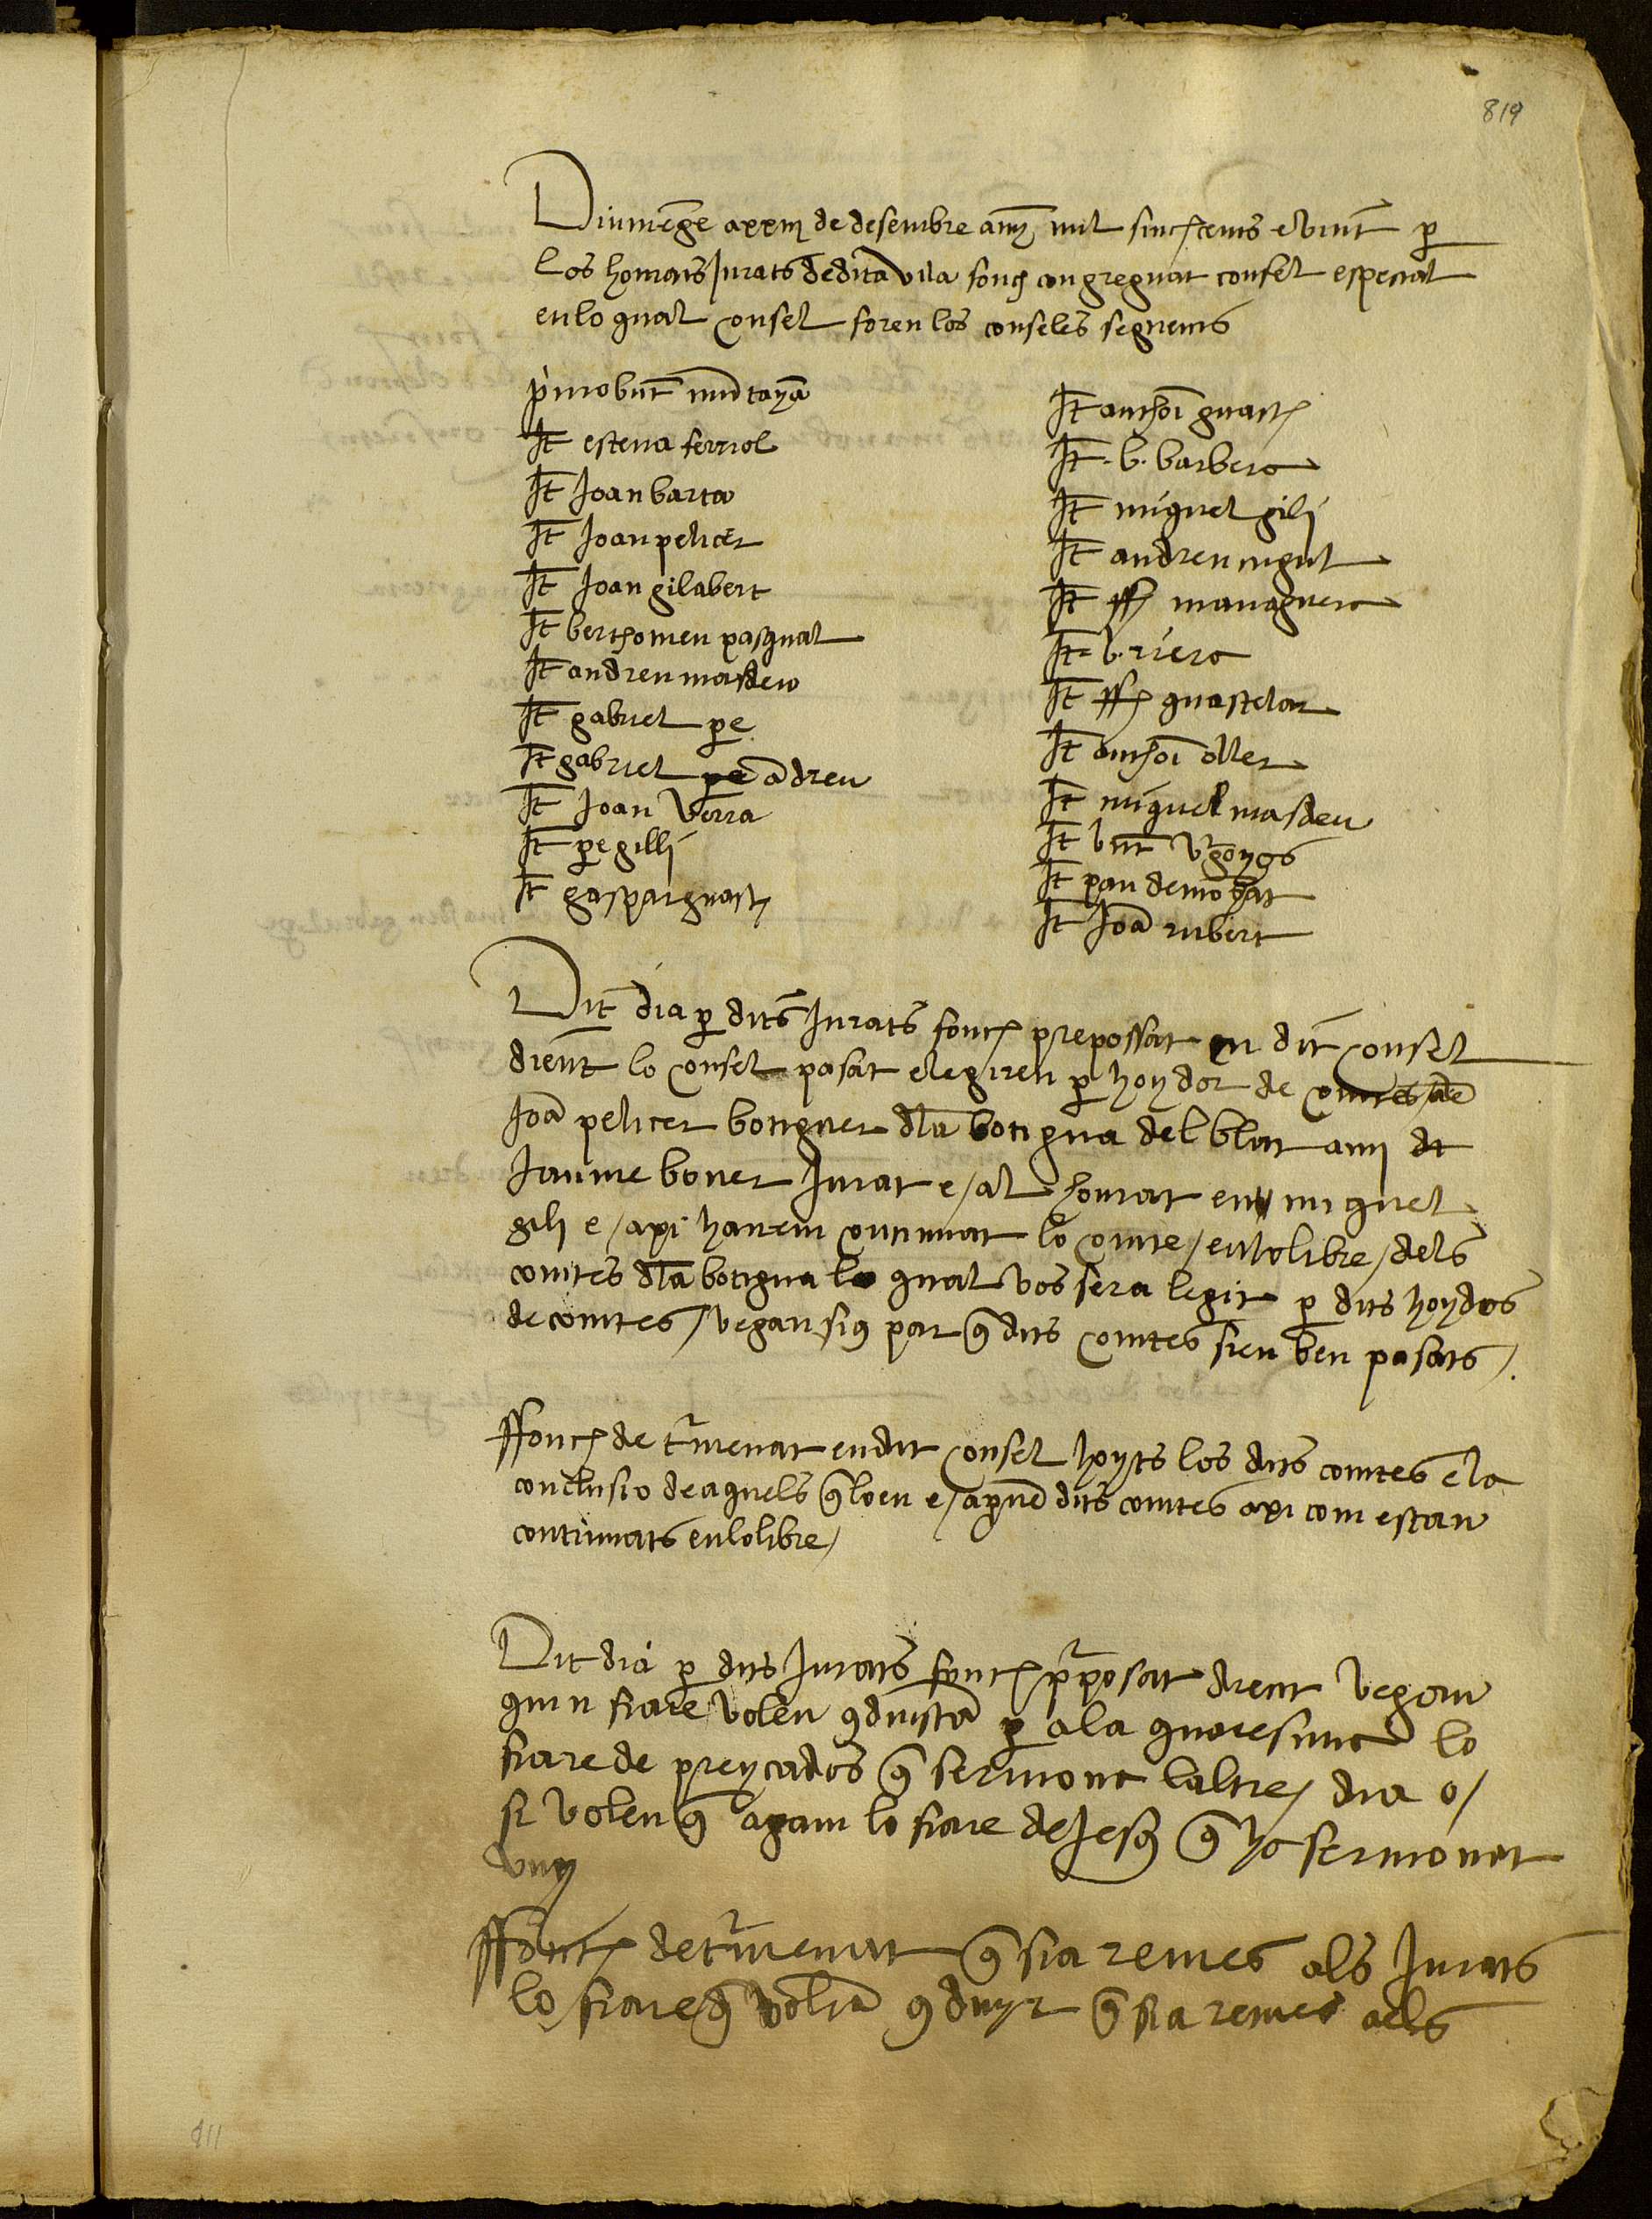 819
Diumẽge a xxiij de desembre any mil sinchcents e vint p
los honrats Jurats de dita vila fonch congreguat consel especial
en lo qual consel foren los conselés seguents
primo bnt mũtayã
It esteua ferriol
It Joan barta
It Joan pelicer
It Joan gilabert
It berthomeu pasqual
It andreu masdeu
It gabriel pe
It gabriel pe ãdreu
It Joan verra
It pe gilli
It gaspar guasch
It anthoi guasch
It .b. barbera
It miguel gili
It andreu
It ff managuera
It .b. riera
It ff guastelar
It anthoi oller
It miguel masdeu
It bnt
It pau demobat
It Joã rubert
Dit dia p dits Jurats fonch prepossat en dit consel
dient lo consel pasat elegiren p hoydor de comtes de
Joã pelicer botiguer dla botigua del blat an dt
Jaume bouer Jurat e/ al honrat en miguel
gili e/ axi hauem continuat lo comte/ en lo libre/ dels
comtes dla botigua lo qual vos sera legit p dits hoydos
de comtes/ vegau siu9 par q̃ dits comtes sien ben pasats/.
ffonch detrmenat en dit consel hoyts los dits comtes e la
conclusio de aquels q̃ loen e/ aprouẽ dits comtes axi com estan
continuats en lo libre/
Dit dia p dits Jurats fonch pposat dient vegau
quin frare volen 9duistã p a la quaresma lo
frare de preycados q̃ sermona laltre/ dia o/
si volen q̃ agam lo frare de Jesus q̃ ya sermonat
vuy
ffonch detrmenat q̃ sia remes als Jurats
lo frare q̃ voliã 9duyr q̃ sia remes a els
811